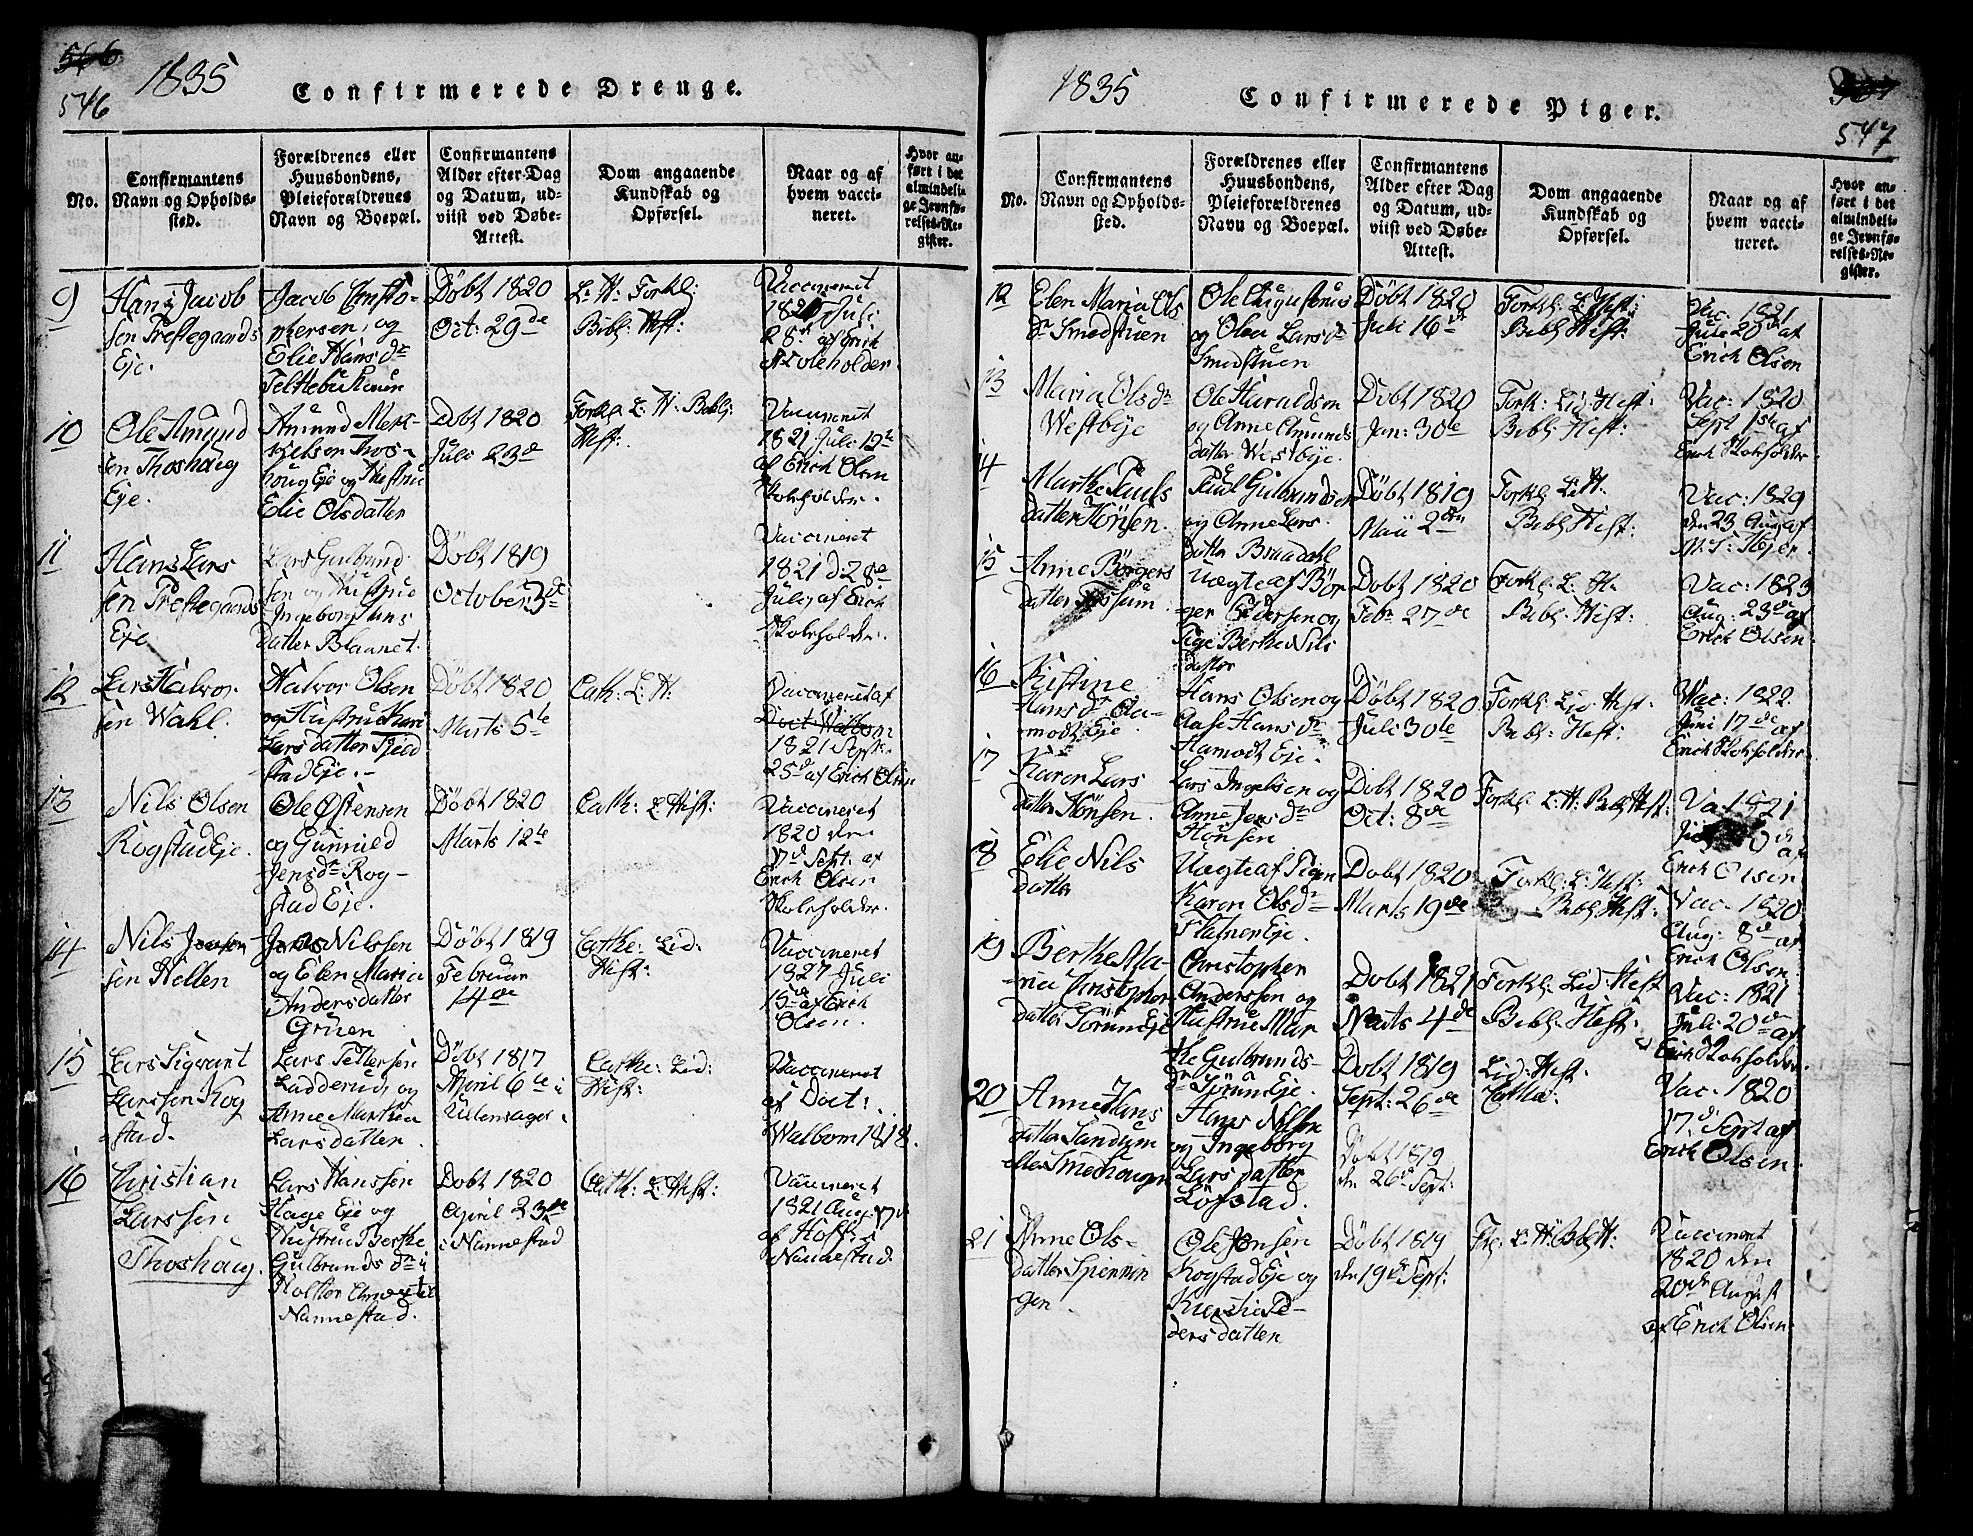 546
1835
Confirmerede Drenge.
No.
Confirmantens
Navn og Opholds-
sted.
Forældrenes eller
Huusbondens,
Pleieforældrenes
Navn og Boepæl.
Confirmantens
Alder efter Dag
og Datum, ud-
viist ved Døbe-
Attest.
Dom angaaende
Kundskab og
Opførsel.
Naar og af
hvem vacci-
neret.
Hvor an-
ført i det
almindeli-
ge Jevnfø-
relses-Re-
gister.
9
Hans Jacob
sen Prestegaards
Eje.
Jacob Christo-
phersen, og
Elie Hans dr
Døbt 1820
Oct: 29de
L: H: Forkl:
Bibl: Hist:
Vaccineret
Juli
28de af Erich
Skoleholder.
10
Ole Amund
sen Thoshaug
Eje.
Amund Mek-
kelsen Thos-
houg Eje og Hustrue
Elie Olsdatter
Døbt 1820
Juli 23de
Forkl: L: H: Bibl:
Hist:
Vaccineret
1821 Juli 12te
af Erich Olsen
Skoleholder.
11
Hans Lars
sen Prestegaards
Eje.
Lars Gulbrand
sen og Hustrue
Ingeborg Hans
datter Blaanet.
Døbt 1819
October 3de
Vaccineret
1821 d: 28de
Julij af Erich
Skoleholder.
12
Lars Halvor
sen Wahl.
Halvor Olsen
og Hustrue Kari
Lars datter
stad Eje.
Døbt 1820
Marts 5te
Cath: L: H:
Vaccineret af
Doct: Walbom
1821 Sept.
25de af Erich Olsen
13
Nils Olsen
Rogstad Eje.
Ole Østensen
og Gunnild
Jens dr Rog-
stad Eje.
Døbt 1820
Marts 12te
Cath: L: Hist:
Vaccineret
1820 den
17de Sept: af
Erich Olsen
Skoleholder.
14
Nils Jensen
sen Hellen
Jens Nilssen
og Elen Maria
Andersdatter
Gruen
Døbt 1819
Februar
14de
Cathe: Lid:
Hist:
Vaccineret
1827 Juli
15de af Erich
Olsen.
15
Lars Sigvart
Larssen Rog
stad.
Lars Pettersen
Ladderud, og
Anne Marthea
Larsdatter.
Døbt 1817
April 6te i
Ullensager.
Cathe: Lid:
Hist:
Vaccineret
af Doct:
Walbom 1818.
16
Christian
Larssen
Thoshaug.
Lars Hanssen
Hage Eje og
Hustrue Berthe
Gulbrands dr i
Nannestad.
Dobt 1820
April 23de
i Nannestad
Cath: L: Hist:
Vaccineret
1821 Aug: 17de
af Hoff i
Nannestad.
1835
Confirmerede Piger.
547
No.
Confirmantens
Navn og Opholds-
sted.
Forældrenes eller
Huusbondens,
Pleieforældrenes
Navn og Boepæl.
Confirmantens
Alder efter Dag
og Datum, ud-
viist ved Døbe-
Attest.
Dom angaaende
Kundskab og
Opførsel.
Naar og af
hvem vacci-
neret.
Hvor an-
ført i det
almindeli-
ge Jevnfø-
relses-Re-
gister.
12
Elen Maria Ols
dr Smedstuen
Ole Augustinus
og Olea Lars dr
Smedstuen
Døbt 1820
Juli 16de
Forkl: L: Hist:
Bibl: Hist:
Vac: 1821
Juli 20de af
Erich Olsen
13
Maria Ols dr
Westbye
Ole Haraldsen
og Anne Amunds
datter Westbye.
Døbt 1820
Jan: 30te
Forkl: Lid: Hist:
Bibl: Hist:
Vac: 1820
Sept 1ste af
Erich Skoleholder
14
Marthe Pauls
datter Hønsen.
Paul Gulbrandsen
og Anne Lars
datter Braadahl
Døbt 1819
Maii 2den
Forkl: L: H:
Bibl: Hist:
Vac: 1829
den 23 Aug af
M. T: Højer
15
Anne Børgers
datter
Uægte af Bør
ger Pedersen og
Pige Berthe Nils
datter
Døbt 1820
Febr 27de
Forkl: L: H:
Bibl: Hist:
Vac: 1823
Aug: 23de af
Erich Olsen.
16
Kistine
Hans dr Aa-
modt Eje
Hans Olsen og
Aase Hans dr
Hamodt Eje.
Døbt 1820
Juli 30te
Forkl: Lid: Hist:
Bibl: Hist:
Vac: 1822
Juni 17de af
Erich Skoleholder
17
Karen Lars
datter Hønsen.
Lars Ingelsen og
Anne Jens dr
Hønsen
Døbt 1820
Oct: 8de
Forkl: L: H: Bibl: Hist:
Vac 1821
af
Erich Olsen
18
Elie Nils
datter
Uægte af Pigen
Karen Ols dr
Flatner Eje.
Dobt 1820
Marts 19de
Forkl: L: Hist:
Bibl: Hist:
Vac: 1820
Aug: 8de af
Erich Olsen.
19
Berthe Ma-
rie Christophers
datter Tørum Eje
Christopher
Anderssen og
Hustrue Mar
the Gulbrands-
dr Tørum Eje.
Dobt 1821
Marts 4de
Forkl: Lid: Hist
Bibl: Hist:
Vac: 1821
Juli 20de af
Erich Skoleholder.
20
Anne Hans
datter Sandum
eller Smedhougen
Hans Nilsen
og Ingeborg
Lars datter
Løfstad.
Dobt 1819
Sept: 26de
Døbt 1819
den 26de Sept:
Lid: Hist:
Vac: 1820
17de Sept af
Erich Olsen.
21
Anne Ols-
datter Spennin
gen.
Ole Jonsen
Rogstad Eje og
Kirstie Pe-
ders datter
Døbt 1819
den 19de Sept:
Vaccineret
1820 den
20de August
af Erich Olsen